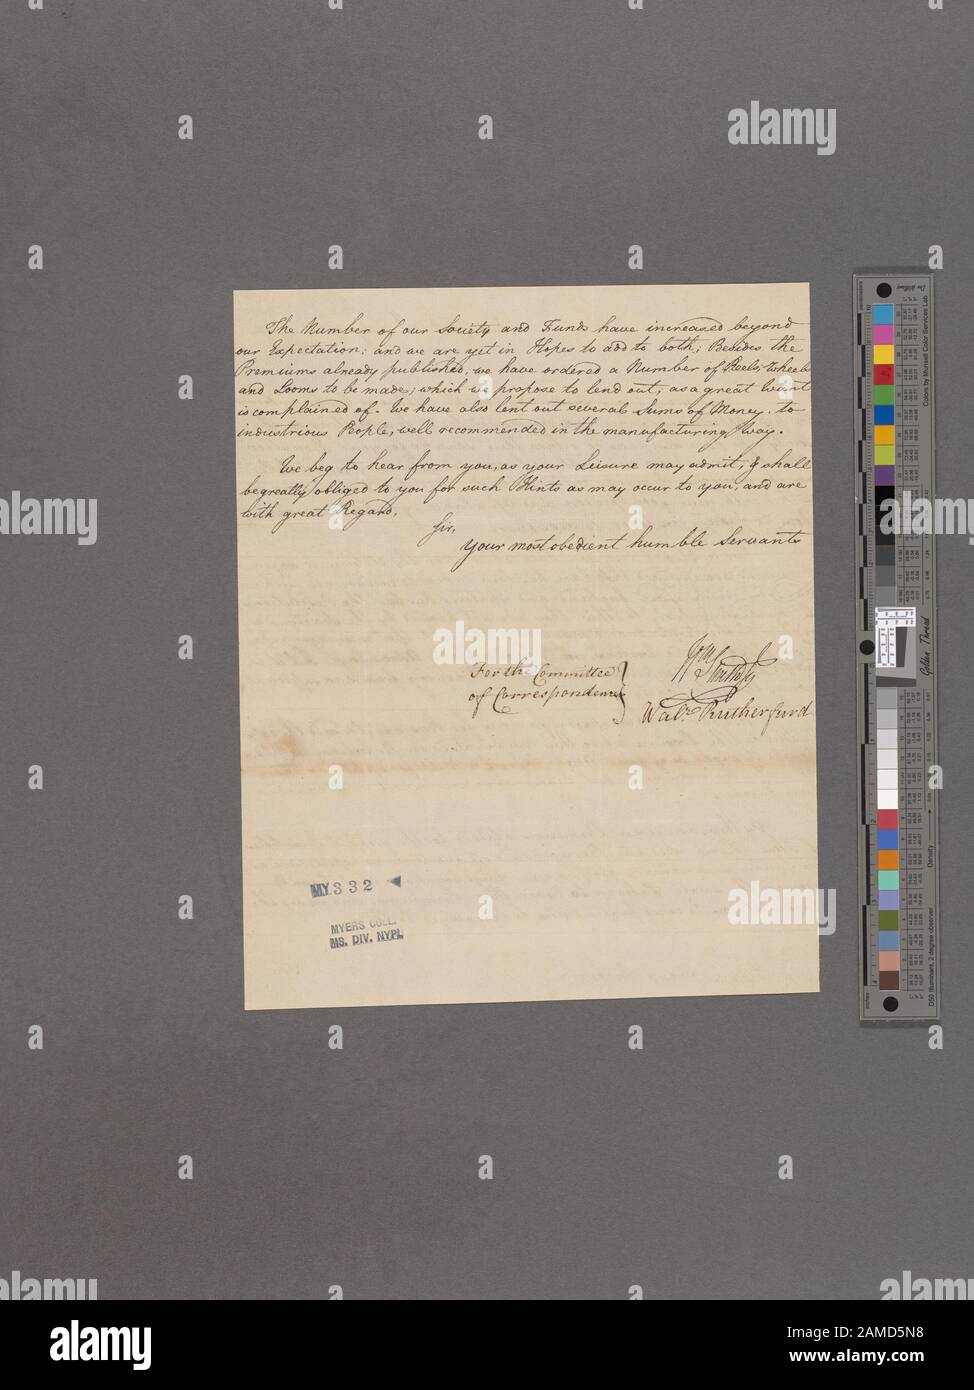 The Number of our Society and Funds have increased beyond
our Expectation; and we are yet in Hopes to add to both; Besides the
Premiums already published, we have ordered a Number of Reels, Wheels
and Looms to be made; which we propose to lend out; as a great Want
is complained of. We have also lent out several Sums of Money, to
industrious People, well recommended in the manufacturing Way.
We beg to hear from you, as your Leisure may admit; & shall
be greatly obliged to you for such Hints as may occur to you, and are
with great Regard,
Sir,
Your most obedient humble Servants
For the Committee
of Correspondence
Wm Smith Jr
Walr. Rutherfurd
MY332
MYERS COLL.
MS. DIV. NYPL
alamy
Image ID: 2AMD5N8
www.alamy.com